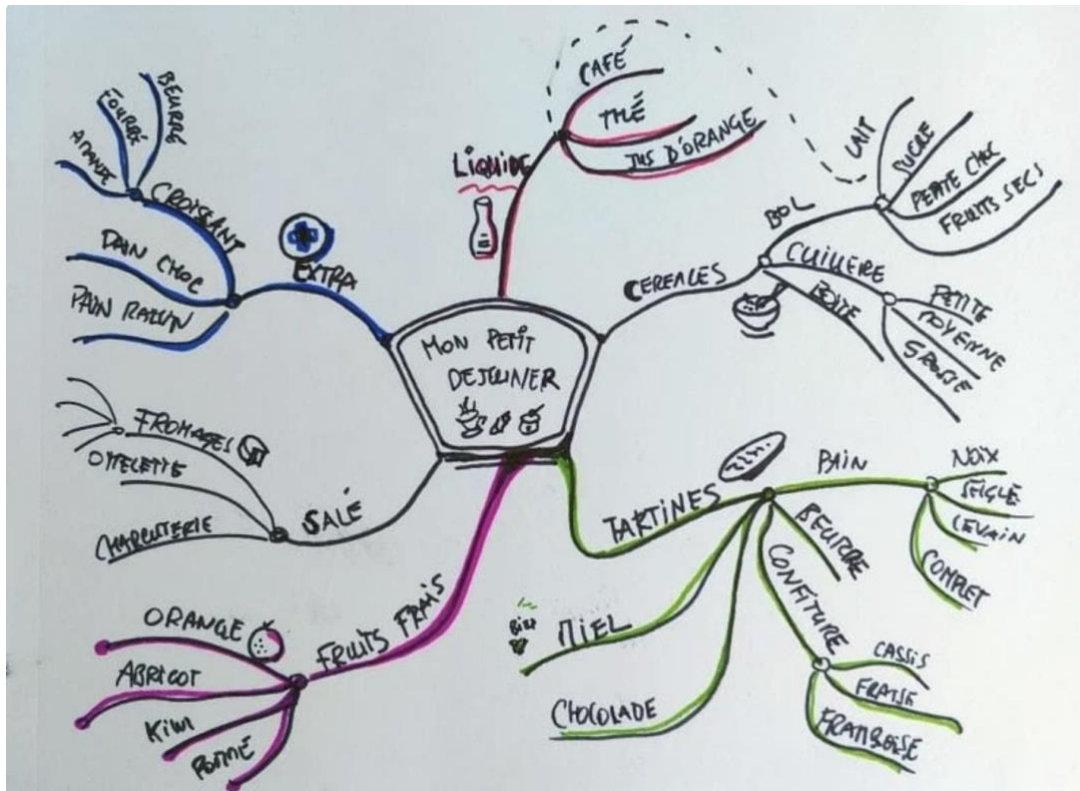 MON PETIT
DEJEUNER
LIQUIDE
CAFÉ
THÉ
JUS D'ORANGE
CEREALES
BOL
LAIT
SUCRE
PEPITE CHOC
FRUITS SECS
CUILLERE
PETITE
MOYENNE
GROSSE
BOITE
TARTINES
PAIN
NOIX
SEIGLE
LEVAIN
COMPLET
BEURRE
CONFITURE
CASSIS
FRAISE
FRAMBOISE
CHOCOLADE
MIEL
FRUITS FRAIS
ORANGE
ABRICOT
KIWI
POMME
SALÉ
FROMAGES
OMELETTE
CHARCUTERIE
EXTRA
CROISSANT
AMANDE
FOURRÉ
BEURRE
PAIN CHOC
PAIN RAISIN